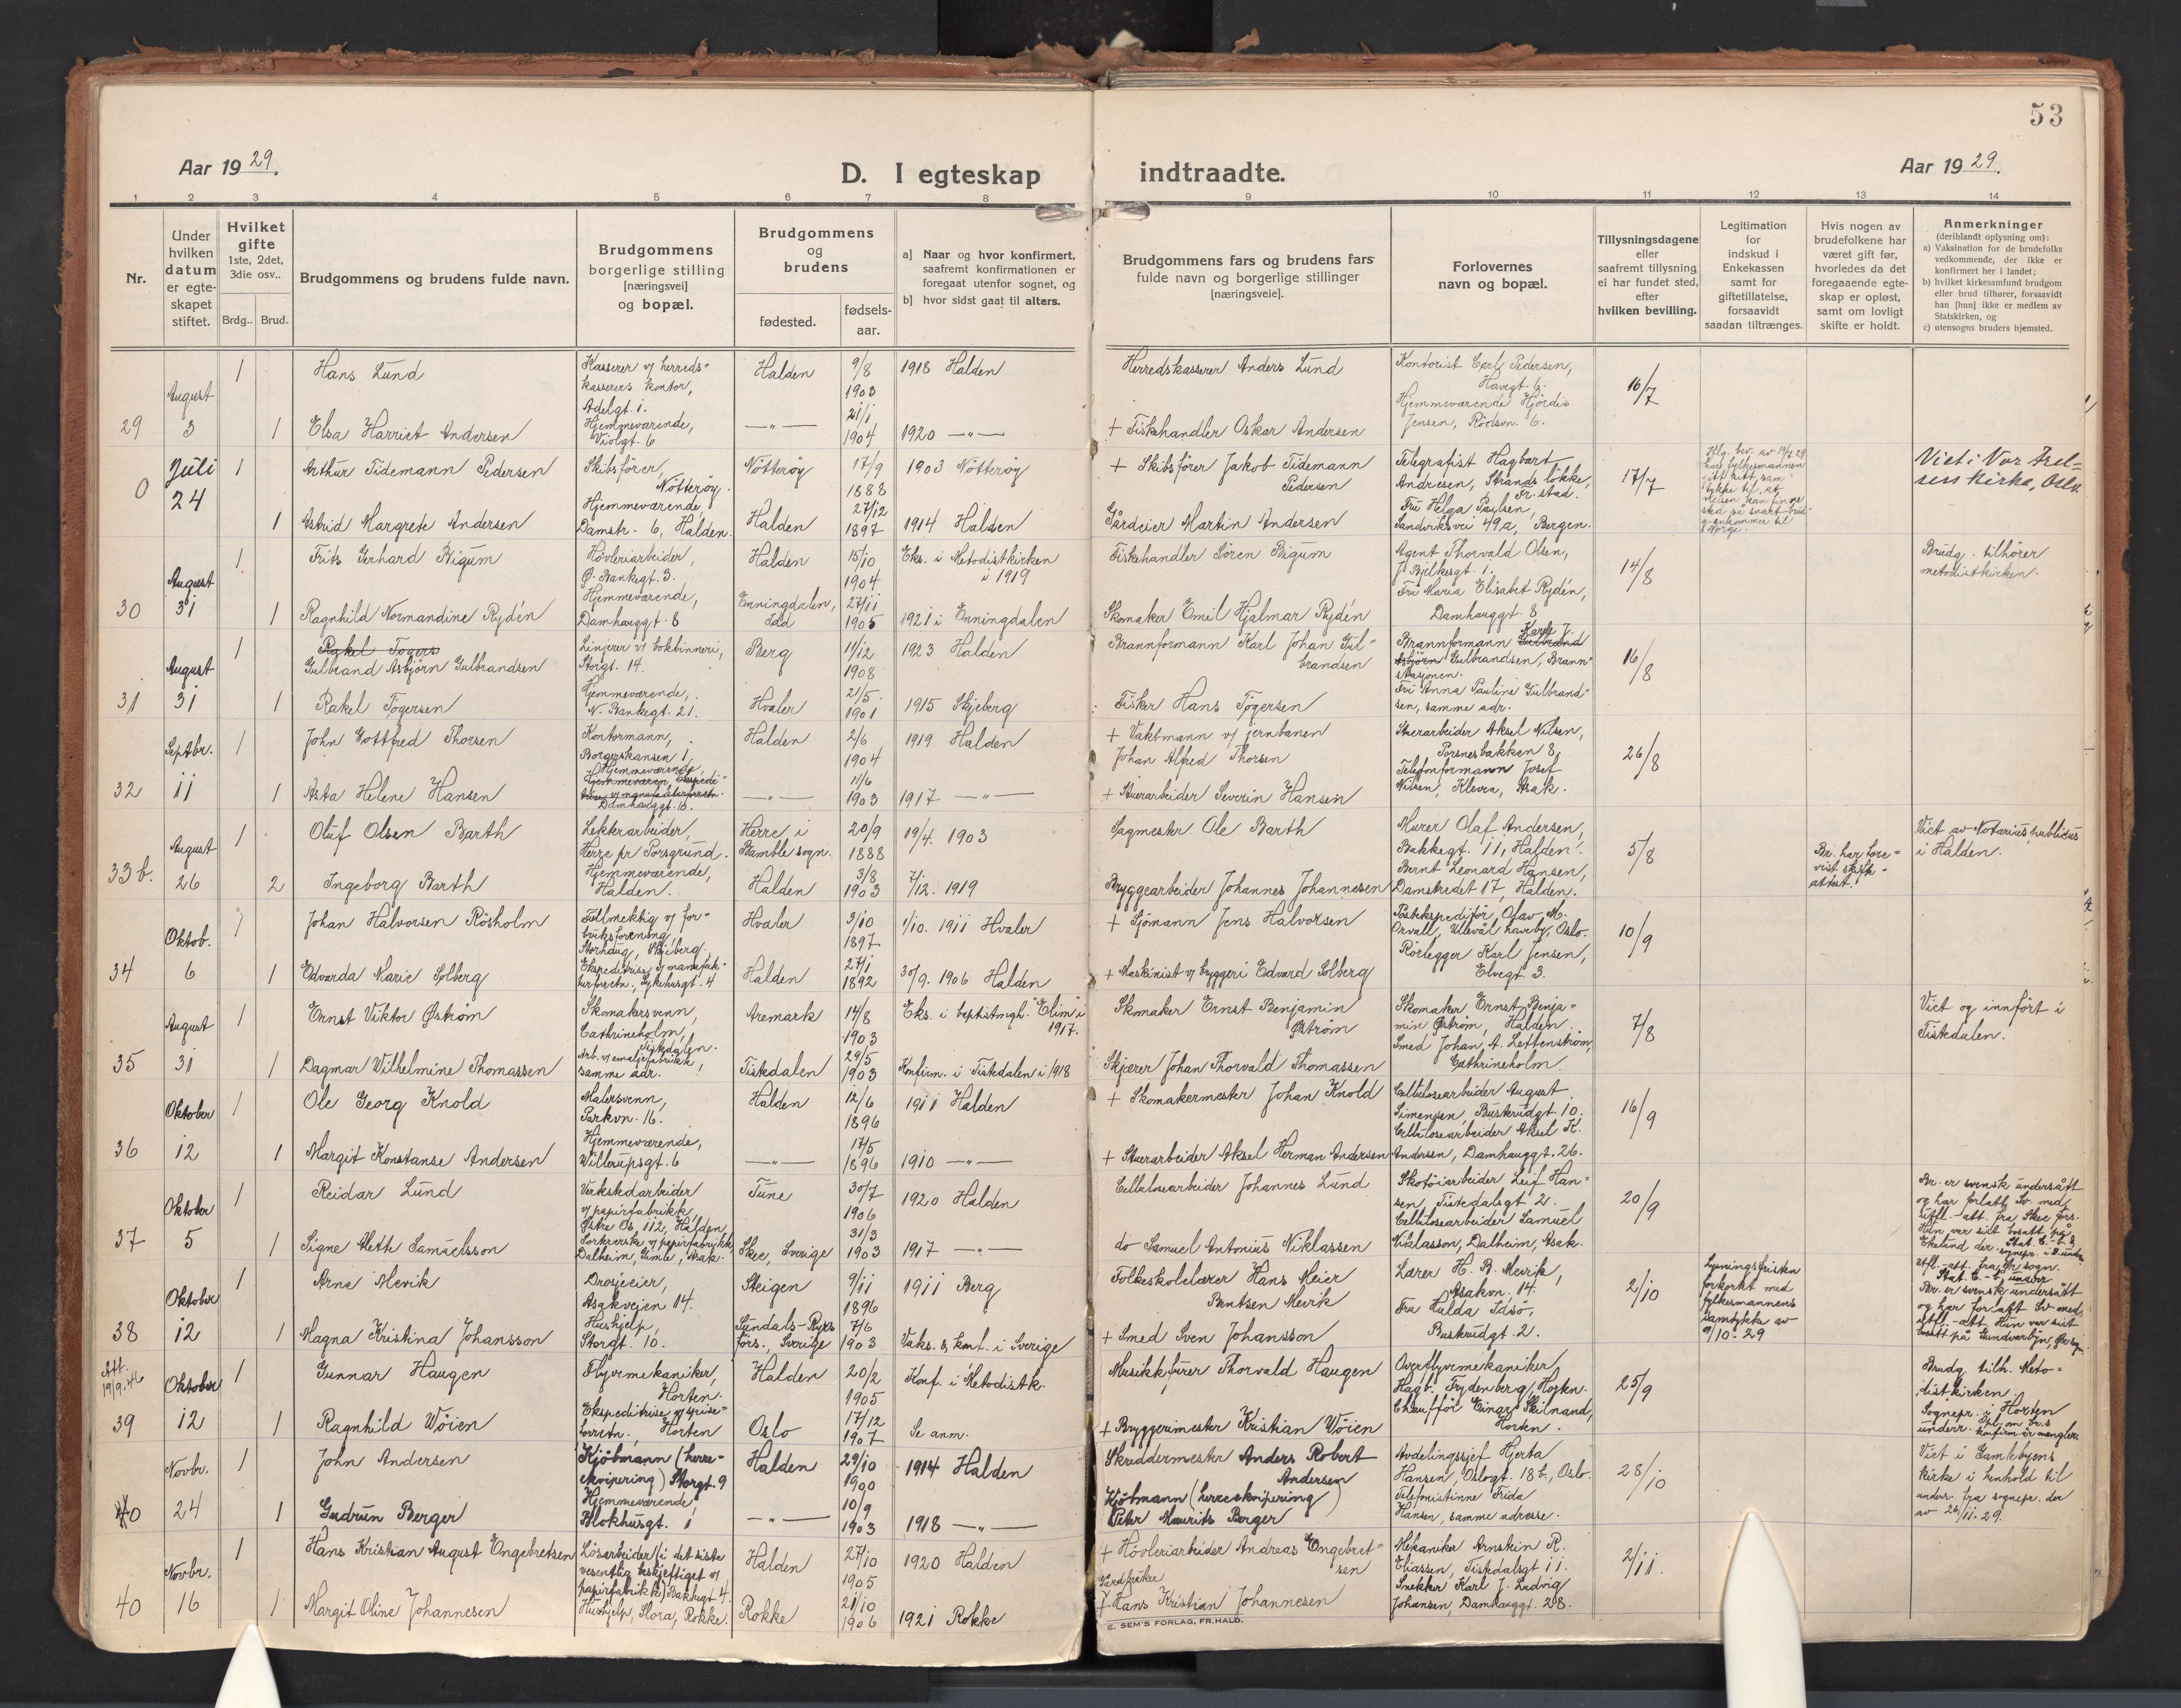 53
Aar 1929.
D. I egteskap indtraadte.
Aar 1929.
1 2 3 4 5 6 7 8 9 10 11 12 13 14
Nr.
Under hvilken datum er egteskapet stiftet.
Hvilket gifte 1ste, 2det, 3die osv..
Brdg.. Brud.
Brudgommens og brudens fulde navn.
Brudgommens borgerlige stilling [næringsvei] og bopæl.
Brudgommens og brudens
fødested.
fødselsaar.
a] Naar og hvor konfirmert, saafremt konfirmationen er foregaat utenfor sognet, og
b] hvor sidst gaat til alters.
Brudgommens fars og brudens fars fulde navn og borgerlige stillinger [næringsveie].
Forlovernes navn og bopæl.
Tillysningsdagene eller saafremt tillysning ei har fundet sted, efter hvilken bevilling.
Legitimation for indskud i Enkekassen samt for giftetillatelse, forsaavidt saadan tiltrænges.
Hvis nogen av brudefolkene har været gift før, hvorledes da det foregaaende egteskap er opløst, samt om lovligt skifte er holdt.
Anmerkninger (deriblandt oplysning om):
a) Vaksination for de brudefolks vedkommende, der ikke er konfirmert her i landet;
b) hvilket kirkesamfund brudgom eller brud tilhører, forsaavidt han [hun] ikke er medlem av Statskirken, og
c) utensogns bruders hjemsted.
29 August 3
1 Hans Lund
Kasserer v/ herredskasserers kontor, Adelgt. 1.
Halden 9/8 1903
1918 Halden
Herredskasserer Anders Lund
Kontorist Carl Pedersen, Havegt. 6.
16/7
1 Elsa Harriet Andersen
Hjemmeværende, Violgt. 6
—"— 21/1 1904
1920 —"—
+ Fiskehandler Oskar Andersen
Hjemmeværende Hjördis Jensen, Rödsvn. 6.
0 Juli 24
1 Arthur Tidemann Pedersen
Skibsförer, Nötteröy.
Nötteröy 17/9 1888
1903 Nötteröy
+ Skibsförer Jakob Tidemann Pedersen
Telegrafist Hagbart Andresen, Strands lökke, Fr.stad.
17/7
Viet i Vor Frelsers Kirke, Oslo.
1 Astrid Margrete Andersen
Hjemmeværende, Damstr. 6, Halden.
Halden 27/12 1897
1914 Halden
Gårdeier Martin Andersen
Fru Helga Paulsen, Sandviksvei 49a, Bergen.
30 August 31
1 Frits Gerhard Bigum
Hövleriarbeider, Ö. Bankegt. 3.
Halden 15/10 1904
Eks. i Metodistkirken i 1919
Fiskehandler Sören Bigum
Agent Thorvald Olsen, J. Bjelkesgt. 1.
14/8
Brudg. tilhører metodistkirken.
1 Ragnhild Normandine Rydén
Hjemmeværende, Damhauggt. 8
Enningdalen, Idd 27/11 1905
1921 i Enningdalen
Skomaker Emil Hjalmar Rydén
Fru Maria Elisabet Rydén, Damhauggt. 8
31 August 31
Rakel Togers
1 Gulbrand Asbjörn Gulbrandsen
Linjerer v/ bokbinneri, Storgt. 14.
Berg 11/12 1908
1923 Halden
Brannformann Karl Johan Gulbrandsen
Brannformann Gulbrand Asbjörn Karl J. Gulbrandsen, Brannstasjonen.
16/8
1 Rakel Togersen
Hjemmeværende, N. Bankegt. 21.
Hvaler 21/5 1901
1915 Skjeberg
Fisker Hans Togersen
Fru Anna Pauline Gulbrandsen, samme adr.
32 Septbr. 11
1 John Gottfred Thorsen
Kontormann, Borgerskansen 1.
Halden 2/6 1904
1919 Halden
+ Vaktmann v/ jernbanen Johan Alfred Thorsen
Stuerarbeider Aksel Nilsen, Porsnesbakken 8,
26/8
1 Asta Helene Hansen
Hjemmeværende, Damhauggt. 16.
—"— 11/6 1903
1917 —"—
+ Stuerarbeider Severin Hansen
Telefonformann Josef Nilsen, Kleven, Asak.
33 b. August 26
1 Oluf Olsen Barth
Lekterarbeider, Herre pr Porsgrund.
Herre, i Bamble sogn. 20/9 1888
19/4. 1903
Sagmester Ole Barth
Murer Olaf Andersen, Bakkegt. 11, Halden.
5/8
Viet av Notarius publicus i Halden.
2 Ingeborg Barth
Hjemmeværende, Halden.
Halden 3/8 1903
7/12. 1919
Bryggearbeider Johannes Johannesen
Bernt Leonard Hansen, Damstredet 17, Halden.
Br. har forevist skifteattest.
34 Oktob. 6
1 Johan Halvorsen Rösholm
Fullmektig v/ forbruksforening, Storhaug, Skjeberg.
Hvaler 3/10 1897
1/10. 1911 Hvaler
+ Sjömann Jens Halvorsen
Postekspeditör Olav M. Orvall, Ullevål haveby, Oslo.
10/9
1 Edvarda Marie Solberg
Ekspeditrise v/ manufakturforretn., Sykehusgt. 4
Halden 27/1 1892
30/9. 1906 Halden
+ Maskinist v/ bryggeri Edvard Solberg
Rörlegger Karl Jensen, Elvegt. 3.
35 August 31
1 Ernst Viktor Øström
Skomakersvenn, Cathrineholm, Tistedalen.
Aremark 14/8 1903
Eks. i baptistmgh. "Elim" i 1917.
Skomaker Ernst Benjamin Øström
Skomaker Ernst Benjamin Øström, Halden
7/8
Viet og innført i Tistedalen.
1 Dagmar Wilhelmine Thomassen
Arb. v/ emaljefabrikk, samme adr.
Tistedalen 29/5 1903
Konfirm. i Tistedalen i 1918
Skjærer Johan Thorvald Thomassen
Smed Johan A. Leffenström, Cathrineholm.
36 Oktober 12
1 Ole Georg Knold
Malersvenn, Parkvn. 16.
Halden 12/6 1896
1911 Halden
+ Skomakermester Johan Knold
Cellulosearbeider August Simensen, Buskrudgt. 10.
16/9
1 Margit Konstanse Andersen
Hjemmeværende, Willerupsgt. 6
—"— 17/5 1896
1910 —"—
+ Stuerarbeider Aksel Herman Andersen
Cellulosearbeider Aksel K. Andersen, Damhauggt. 26.
37 Oktober 5
1 Reidar Lund
Verkstedarbeider v/ papirfabrikk, Østre Os, 112, Halden
Tune 30/7 1906
1920 Halden
Cellulosearbeider Johannes Lund
Skotöiarbeider Leif Hansen, Tistedalsgt. 2.
20/9
Br. er svensk undersått og har forlatt Sv. med
1 Signe Aleth Samuelsson
Sorkerske v/ papirfabrikk, Dalheim, Gimle, Asak.
Skee, Sverige 31/3 1903
1917 —"—
do Samuel Antonius Niklassen
Cellulosearbeider Samuel Niklasson, Dalheim, Asak.
38 Oktober 12
1 Arne Mevik
Drosjeeier, Asakveien 14.
Steigen 9/11 1896
1911 Berg
Folkeskolelærer Hans Meier Bentsen Mevik
Lærer H. B. Mevik, Asakvn. 14.
2/10
Lysningsfristen forkortet med fylkesmannens samtykke av 9/10.29
Br. er svensk undersått og har forlatt Sv. med
1 Magna Kristina Johansson
Hushjelp, Storgt. 10.
7/6 1903
Vaks. & konf. i Sverige
+ Smed Sven Johansson
Fru Hulda Idsö, Buskrudgt. 2.
Att. 19/9.46
39 Oktober 12
1 Gunnar Haugen
Flyvemekaniker, Horten.
Halden 20/2 1905
Konf. i Metodistk.
Musikkfurer Thorvald Haugen
Overflyvemekaniker Hagb. Frydenberg, Horten.
25/9
Brudg. tilh. Metodistkirken
1 Ragnhild Wöien
Ekspeditrise v/ Horten
Oslo 17/12 1907
Se anm.
+ Bryggerimester Kristian Wöien
Chaufför Einar Skilnand, Horten.
Sognepr. i Horten underr. Opl. om br.s konfirm. er mangler
40 Novbr. 24
1 John Andersen
Kjöbmann (herreekvipering) Storgt. 9
Halden 29/10 1900
1914 Halden
Skreddermester Anders Robert Andersen
Avdelingssjef Hjerta Hansen, Oslogt. 18b, Oslo.
28/10
Viet i Gamlebyens kirke i henhold til underr. fra sognepr. der av 26/11.29.
1 Gudrun Berger
Hjemmeværende, Blokhusgt. 1
—"— 10/9 1903
1918 —"—
Kjöbmann (herreekvipering) Peter Maurits Berger
Telefonistinne Frida Hansen, samme adresse.
40 Novbr. 16
1 Hans Kristian August Engebretsen
Løsarbeider (i det siste vesentlig beskjeftiget v/ papirfabrikk) Bakkegt. 4.
Halden 27/10 1905
1920 Halden
+ Hövleriarbeider Andreas Engebretsen
Mekaniker Arnstein R. Eliassen, Tistedalsgt. 11.
2/11.
1 Margit Oline Johannesen
Hushjelp, Slora, Rokke.
Rokke 21/10 1906
1921 Rokke
+ Hans Kristian Johannesen
Snekker Karl J. Ludvig Johansen, Damhauggt. 28.
E. SEM'S FORLAG, FR.HALD.